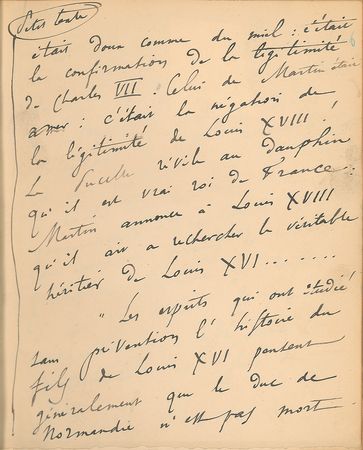 Petit texte
était doux comme du miel : c'était
la confirmation de la légitimité
de Charles VII. Celui de Martin était
amer : c'était la négation de
la légitimité de Louis XVIII !
La Pucelle révèle au dauphin
qu'il est vrai roi de France :
Martin annonce à Louis XVIII
qu'il ait a rechercher le véritable
héritier de Louis XVI.......
" Les esprits qui ont étudié
sans prévention l'histoire du
fils de Louis XVI pensent
généralement que le Duc de
Normandie n'est pas mort